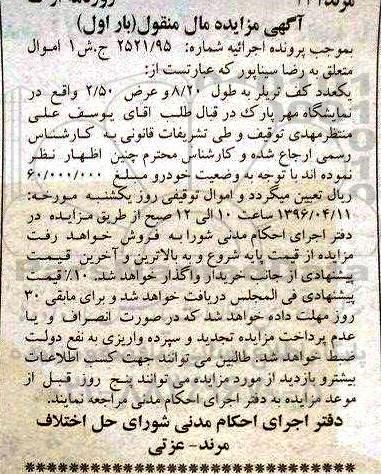 مرند ۱۴۱
آگهی مزایده مال منقول(بار اول)
بموجب پرونده اجرائیه شماره: ۲۵۲۱/۹۵ ج.ش۱ اموال
متعلق به رضا سیناپور که عبارتست از:
یکعدد کف تریلر به طول ۸/۲۰ و عرض ۲/۵۰ واقع در
نمایشگاه مهر پارک در قبال طلب آقای یوسف علی
منتظرمهدی توقیف و طی تشریفات قانونی به کارشناس
رسمی ارجاع شده و کارشناس محترم چنین اظهار نظر
نموده اند با توجه به وضعیت خودرو مبلغ ۶۰/۰۰۰/۰۰۰
ریال تعیین میگردد و اموال توقیفی روز یکشنبه مورخه:
۱۳۹۶/۰۴/۱۱ ساعت ۱۰ الی ۱۲ صبح از طریق مزایده در
دفتر اجرای احکام مدنی شورا به فروش خواهد رفت
مزایده از قیمت پایه شروع و به بالاترین و آخرین قیمت
پیشنهادی از جانب خریدار واگذار خواهد شد. ۱۰٪ قیمت
پیشنهادی فی المجلس دریافت خواهد شد و برای مابقی ۳۰
روز مهلت داده خواهد شد که در صورت انصراف و یا
عدم پرداخت مزایده تجدید و سپرده واریزی به نفع دولت
ضبط خواهد شد. طالبین می توانند جهت کسب اطلاعات
بیشترو بازدید از مورد مزایده می توانند پنج روز قبل از
موعد مزایده به دفتر اجرای احکام مدنی مراجعه نمایند.
دفتر اجرای احکام مدنی شورای حل اختلاف
مرند- عزتی